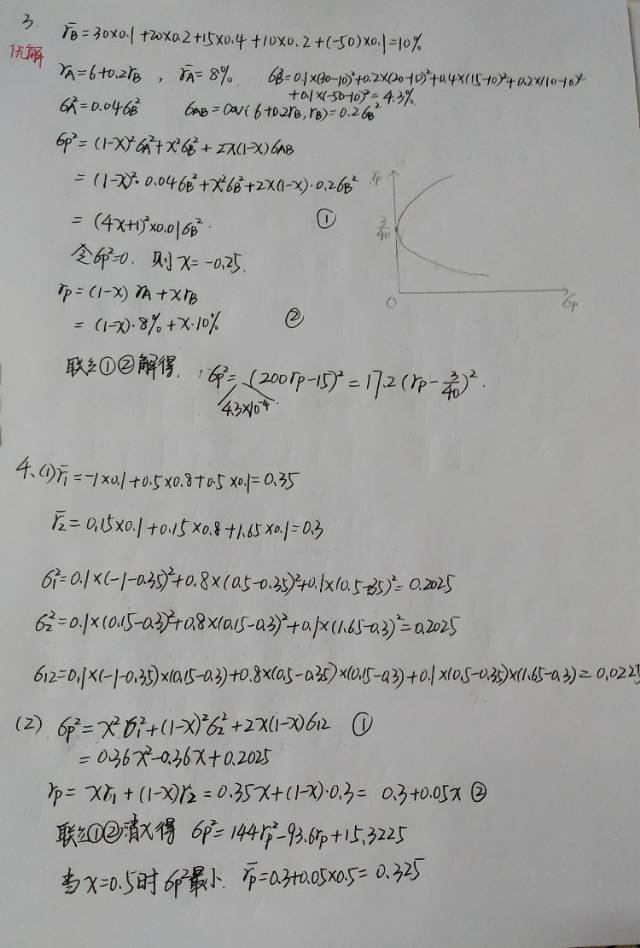 3.
r̄B=30×0.1+20×0.2+15×0.4+10×0.2+(-50)×0.1=10%
优解
rA=6+0.2rB , r̄A=8%. σB²=0.1×(30-10)²+0.2×(20-10)²+0.4×(15-10)²+0.2×(10-10)²
+0.1×(-50-10)²=4.3%.
σA²=0.04σB² σAB=Cov(6+0.2rB, rB)=0.2σB²
σp²=(1-x)²σA²+x²σB²+2x(1-x)σAB
=(1-x)²·0.04σB²+x²σB²+2x(1-x)·0.2σB²
=(4x+1)²×0.01σB². ①
令σp²=0. 则x=-0.25.
rp=(1-x)rA+xrB
=(1-x)·8%+x·10% ②
rp
3/40
0
σp
联立①②解得, σp²=(200rp-15)²=17.2(rp-3/40)².
4.3×10⁻⁴
4.(1)r̄1=-1×0.1+0.5×0.8+0.5×0.1=0.35
r̄2=0.15×0.1+0.15×0.8+1.65×0.1=0.3
σ1²=0.1×(-1-0.35)²+0.8×(0.5-0.35)²+0.1×(0.5-0.35)²=0.2025
σ2²=0.1×(0.15-0.3)²+0.8×(0.15-0.3)²+0.1×(1.65-0.3)²=0.2025
σ12=0.1×(-1-0.35)×(0.15-0.3)+0.8×(0.5-0.35)×(0.15-0.3)+0.1×(0.5-0.35)×(1.65-0.3)=0.0225
(2) σp²=x²σ1²+(1-x)²σ2²+2x(1-x)σ12 ①
=0.36x²-0.36x+0.2025
rp=xr1+(1-x)r2=0.35x+(1-x)·0.3=0.3+0.05x ②
联立①②消x得 σp²=144rp²-93.6rp+15.3225
当x=0.5时σp²最小. r̄p=0.3+0.05×0.5=0.325